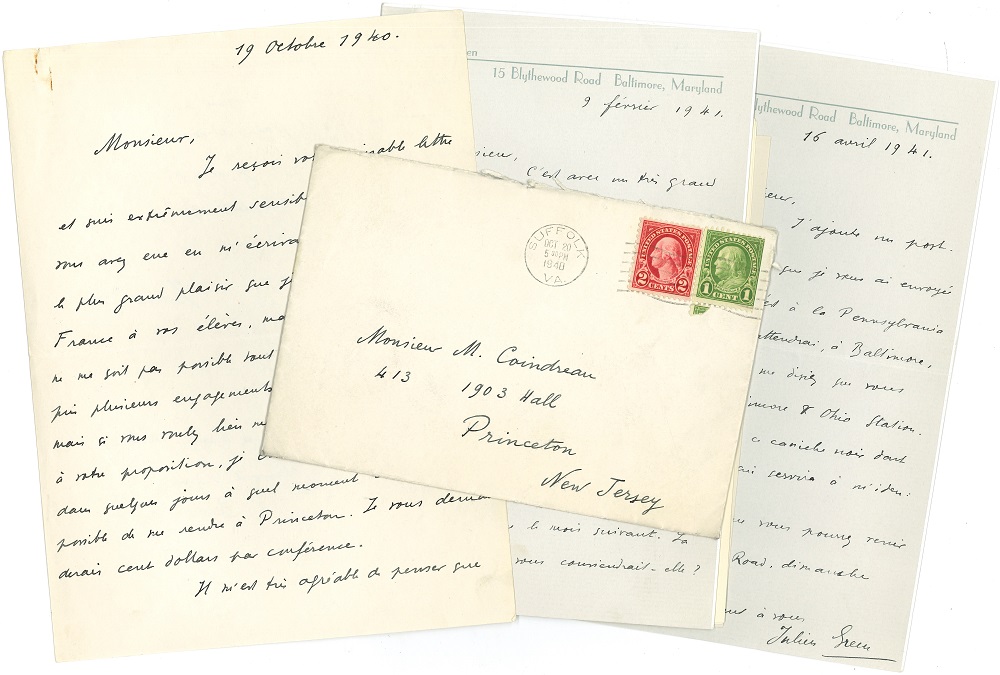 19 Octobre 1940.
Monsieur,
Je reçois votre aimable lettre
et suis extrêmement sensib
vous avez eue en m'écriva
le plus grand plaisir que j
France à vos élèves, ma
ne me soit pas possible tout
pris plusieurs engagements
mais si vous voulez bien m
à votre proposition, je
dans quelques jours à quel moment
possible de me rendre à Princeton. Je vous deman
derais cent dollars par conférence.
Il m'est très agréable de penser que
een
15 Blythewood Road Baltimore, Maryland
9 février 1941.
sieur,
C'est avec un très grand
le mois suivant. La
vous conviendrait-elle?
lythewood Road Baltimore, Maryland
16 avril 1941.
ieur,
J'ajoute un post-
que je vous ai envoyé
est à la Pennsylvania
attendrai, à Baltimore,
me disiez que vous
imore & Ohio Station.
caniche noir dont
servira à m'iden-
vous pourrez venir
Road, dimanche
à vous
Julien Green
SUFFOLK
OCT 20
5 PM
1940
VA.
UNITED STATES POSTAGE
2 CENTS 2
UNITED STATES POSTAGE
1 CENT 1
Monsieur M. Coindreau
413 1903 Hall
Princeton
New Jersey